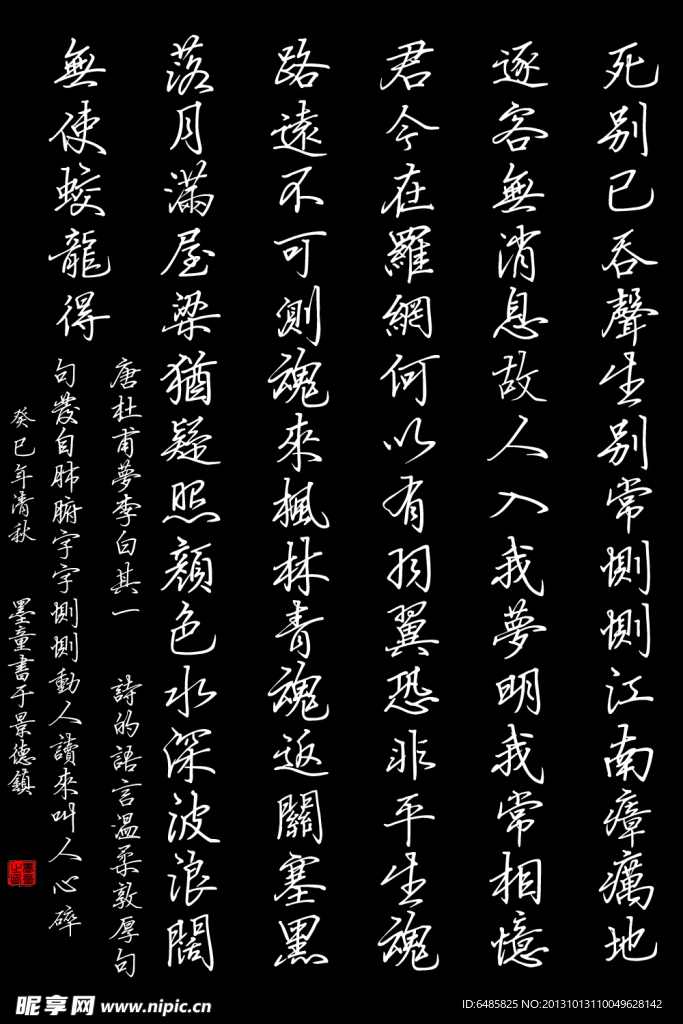 死别已吞聲生别常惻惻江南瘴癘地
逐客無消息故人入我夢明我常相憶
君今在羅網何以有羽翼恐非平生魂
路遠不可測魂來楓林青魂返關塞黑
落月滿屋梁猶疑照顏色水深波浪闊
無使蛟龍得
唐杜甫夢李白其一 詩的語言温柔敦厚句
句發自肺腑字字惻惻動人讀來叫人心碎
癸巳年清秋 墨童書于景德鎮
昵享网 www.nipic.cn
ID:6485825 NO:20131013110049628142